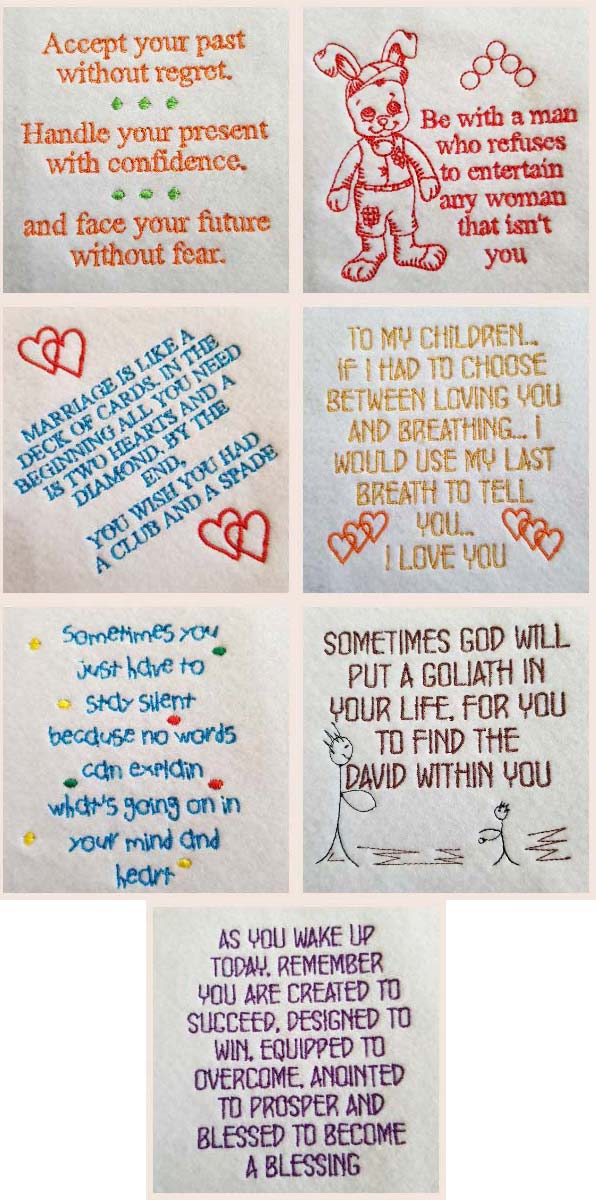 Accept your past
without regret.
Handle your present
with confidence.
and face your future
without fear.
Be with a man
who refuses
to entertain
any woman
that isn't
you
MARRIAGE IS LIKE A
DECK OF CARDS. IN THE
BEGINNING ALL YOU NEED
IS TWO HEARTS AND A
DIAMOND. BY THE
END,
YOU WISH YOU HAD
A CLUB AND A SPADE
TO MY CHILDREN...
IF I HAD TO CHOOSE
BETWEEN LOVING YOU
AND BREATHING... I
WOULD USE MY LAST
BREATH TO TELL
YOU...
I LOVE YOU
Sometimes you
just have to
stay silent
because no words
can explain
what's going on in
your mind and
heart
SOMETIMES GOD WILL
PUT A GOLIATH IN
YOUR LIFE, FOR YOU
TO FIND THE
DAVID WITHIN YOU
AS YOU WAKE UP
TODAY, REMEMBER
YOU ARE CREATED TO
SUCCEED, DESIGNED TO
WIN, EQUIPPED TO
OVERCOME, ANOINTED
TO PROSPER AND
BLESSED TO BECOME
A BLESSING